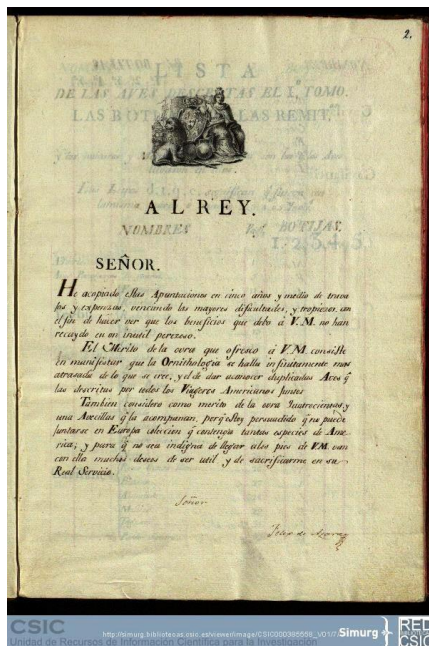 2.
LISTA
DE LAS AVES DESCRITAS EL I, TOMO.
LAS BOT LAS REMIT.
AL REY.
NOMBRES BOTIJAS.
1. 2, 3, 4, 5,
SEÑOR.
He acopiado estas Apuntaciones en cinco años y medio de traba
jos y expensas, venciendo las mayores dificultades, y tropiezos, con
el fin de hacer ver que los beneficios que debo á V.M. no han
recaydo en un inutil perezoso.
El Merito de la ovra que ofresco á V.M. consiste
en manifestar que la Ornithologia se halla infinitamente mas
atrasada de lo que se cree; y el de dar a conocer duplicadas Aves q
las descritas por todos los Viageros Americanos juntos
Tambien considero como merito de la ovra Quatrocientas, y
una Avecillas q la acompañan, perq estoy persuadido q no puede
juntarse en Europa colección q contenga tantas especies de Ame-
rica; y para q no sea indigna de llegar alos pies de V.M. van
con ella muchos deseos de ser util y de sacrificarme en su
Real Servicio.
Señor
Felix de Azara
CSIC
Unidad de Recursos de Información Científica para la Investigación
http://simurg.bibliotecas.csic.es/viewer/image/CSIC000385559_V01/7/
Simurg
RED
CSIC